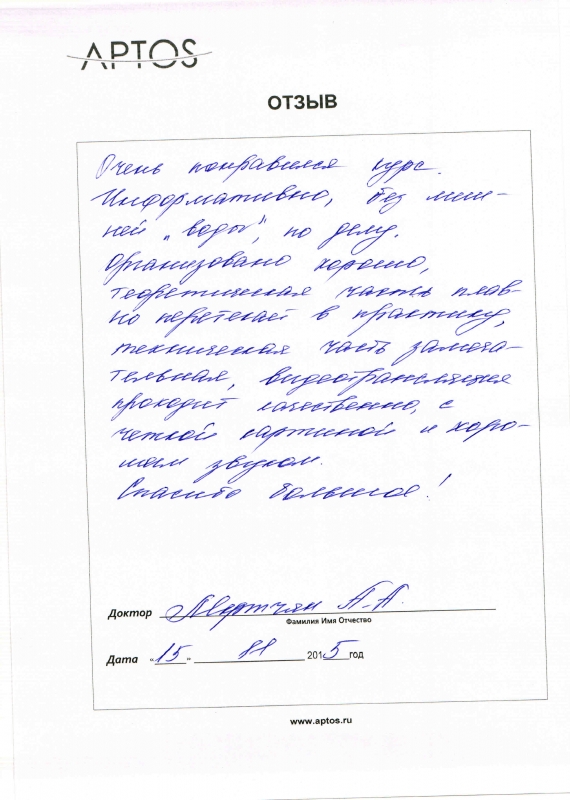 APTOS
ОТЗЫВ
Очень понравился курс.
Информативно, без лиш-
ней „воды", по делу.
Организовано хорошо,
теоретическая часть плав-
но перетекает в практику,
техническая часть замеча-
тельная, видеотрансляция
проходит качественно, с
четкой картиной и хоро-
шим звуком.
Спасибо большое!
Доктор А.А.
Фамилия Имя Отчество
Дата «15» 2015 год
www.aptos.ru